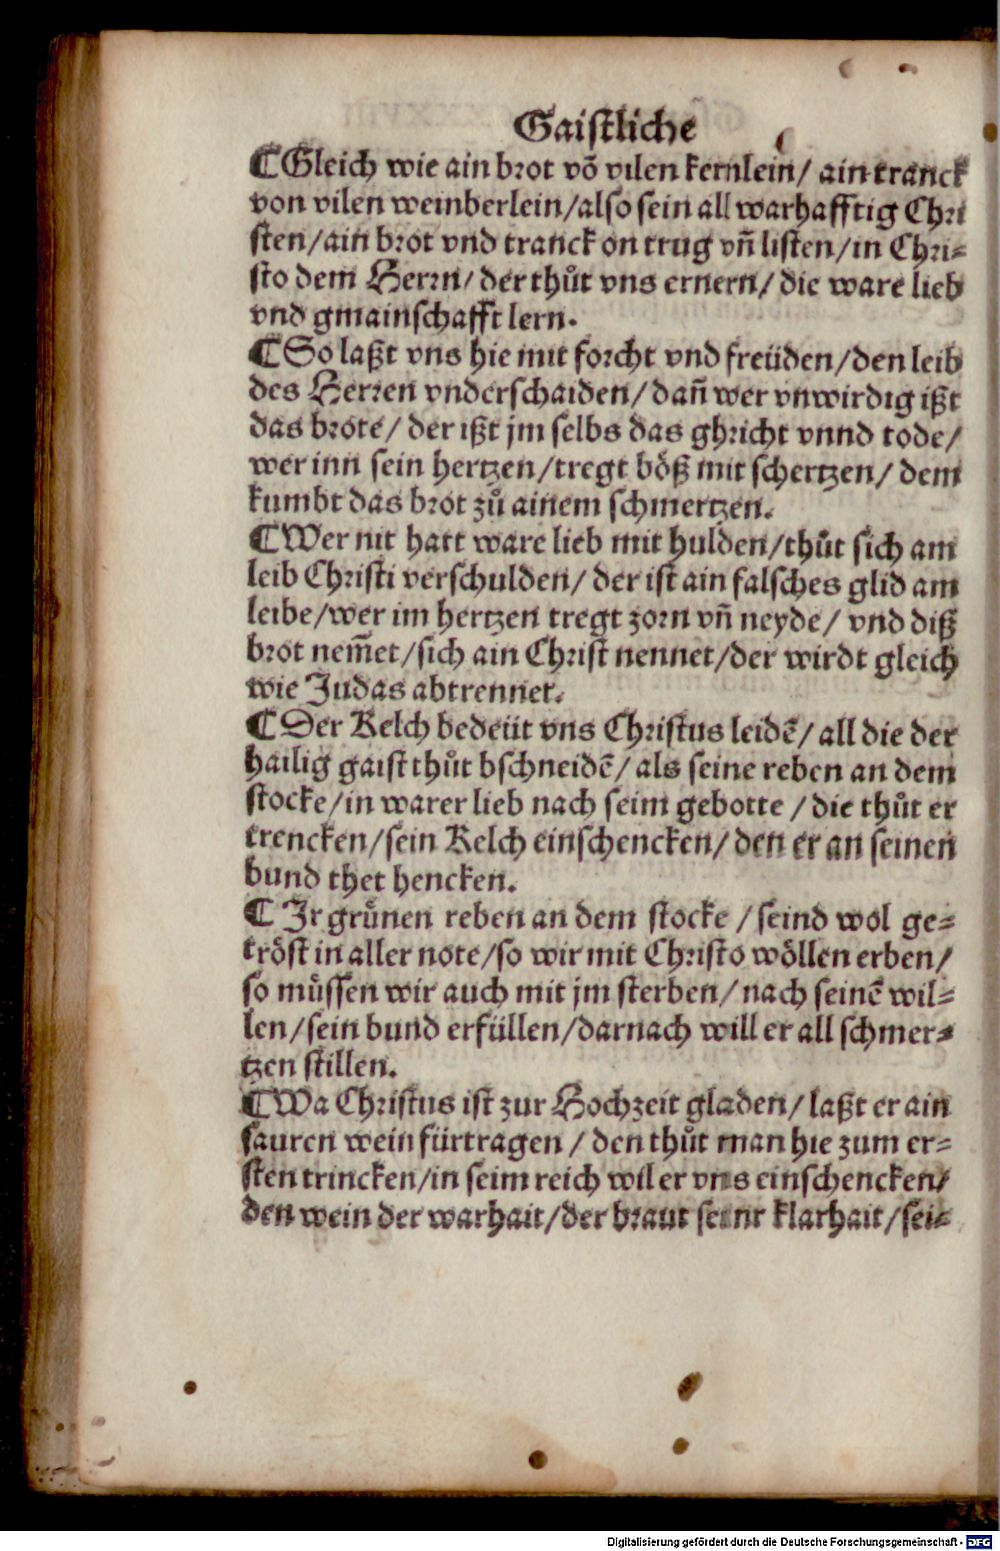 Gaistliche
¶Gleich wie ain brot võ vilen kernlein/ ain tranck
von vilen weinberlein/also sein all warhafftig Chri
sten/ain brot vnd tranck on trug vñ listen/in Chri-
sto dem Herrn/ der thůt vns ernern/ die ware lieb
vnd gmainschafft lern.
¶So laßt vns hie mit forcht vnd freüden/den leib
des Herren vnderschaiden/ dañ wer vnwirdig ißt
das brote/ der ißt jm selbs das ghricht vnnd tode/
wer inn sein hertzen/tregt böß mit schertzen/ dem
kumbt das brot zů ainem schmertzen.
¶Wer nit hatt ware lieb mit hulden/thůt sich am
leib Christi verschulden/ der ist ain falsches glid am
leibe/wer im hertzen tregt zorn vñ neyde/ vnd diß
brot nem̃et/sich ain Christ nennet/der wirdt gleich
wie Judas abtrennet.
¶Der Kelch bedeüt vns Christus leidẽ/ all die der
hailig gaist thůt bschneidẽ/ als seine reben an dem
stocke/in warer lieb nach seim gebotte / die thůt er
trencken/sein Kelch einschencken/ den er an seinen
bund thet hencken.
¶Ir grůnen reben an dem stocke / seind wol ge-
tröst in aller note/so wir mit Christo wöllen erben/
so můssen wir auch mit jm sterben/ nach seinẽ wil-
len/sein bund erfüllen/darnach will er all schmer-
tzen stillen.
¶Wa Christus ist zur Hochzeit gladen/ laßt er ain
sauren wein fürtragen / den thůt man hie zum er-
sten trincken/in seim reich wil er vns einschencken/
den wein der warhait/der braut seinr klarhait/sei-
Digitalisierung gefördert durch die Deutsche Forschungsgemeinschaft - DFG